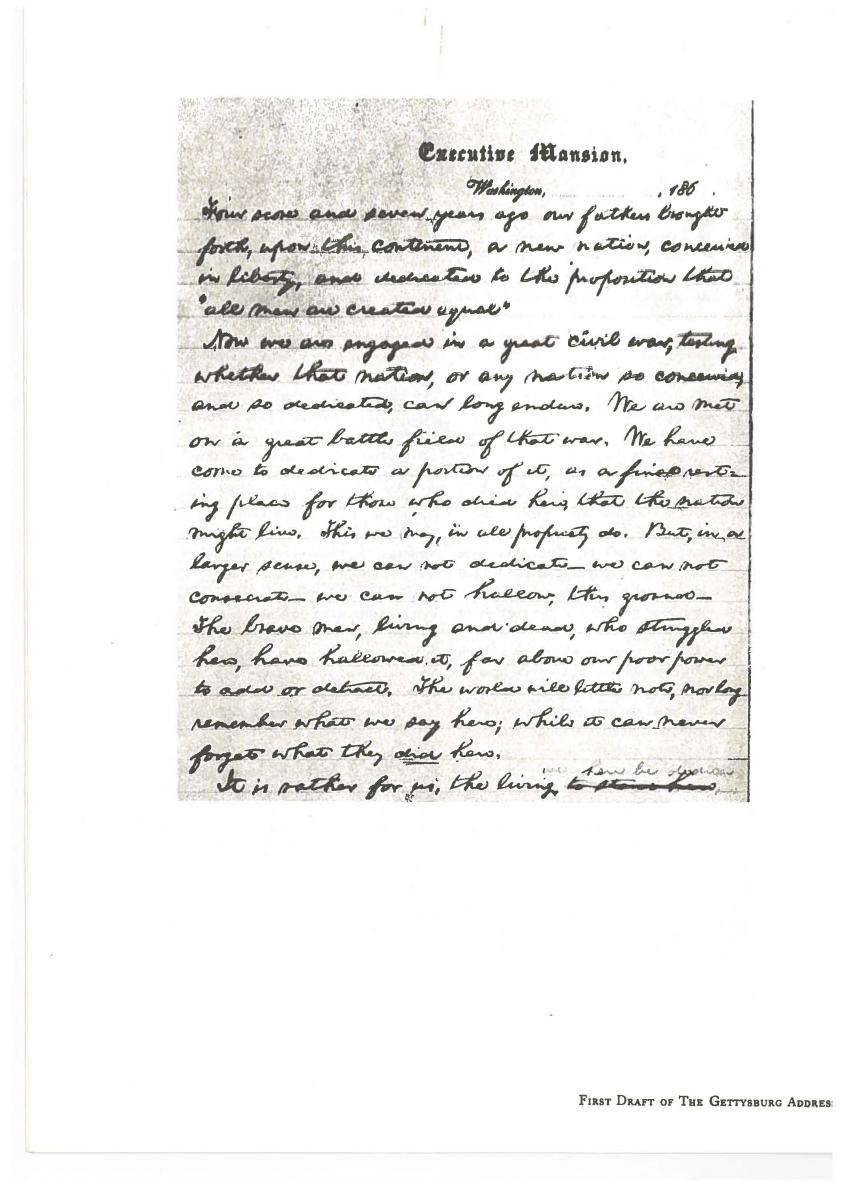 Executive Mansion,
Washington, , 186 .
Four score and seven years ago our fathers brought
forth, upon this continent, a new nation, conceived
in liberty, and dedicated to the proposition that
"all men are created equal"
Now we are engaged in a great civil war, testing
whether that nation, or any nation so conceived,
and so dedicated, can long endure. We are met
on a great battle field of that war. We have
come to dedicate a portion of it, as a final rest-
ing place for those who died here, that the nation
might live. This we may, in all propriety do. But, in a
larger sense, we can not dedicate— we can not
consecrate— we can not hallow, this ground—
The brave men, living and dead, who struggled
here, have hallowed it, far above our poor power
to add or detract. The world will little note, nor long
remember what we say here; while it can never
forget what they did here.
we here be dedica
It is rather for us, the living, to stand here,
FIRST DRAFT OF THE GETTYSBURG ADDRES